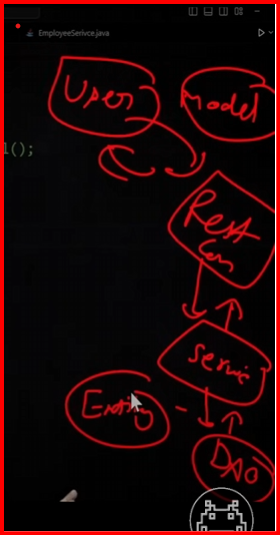 EmployeeSerivce.java
User
Model
l();
Rest
Con
Service
Entity
DAO